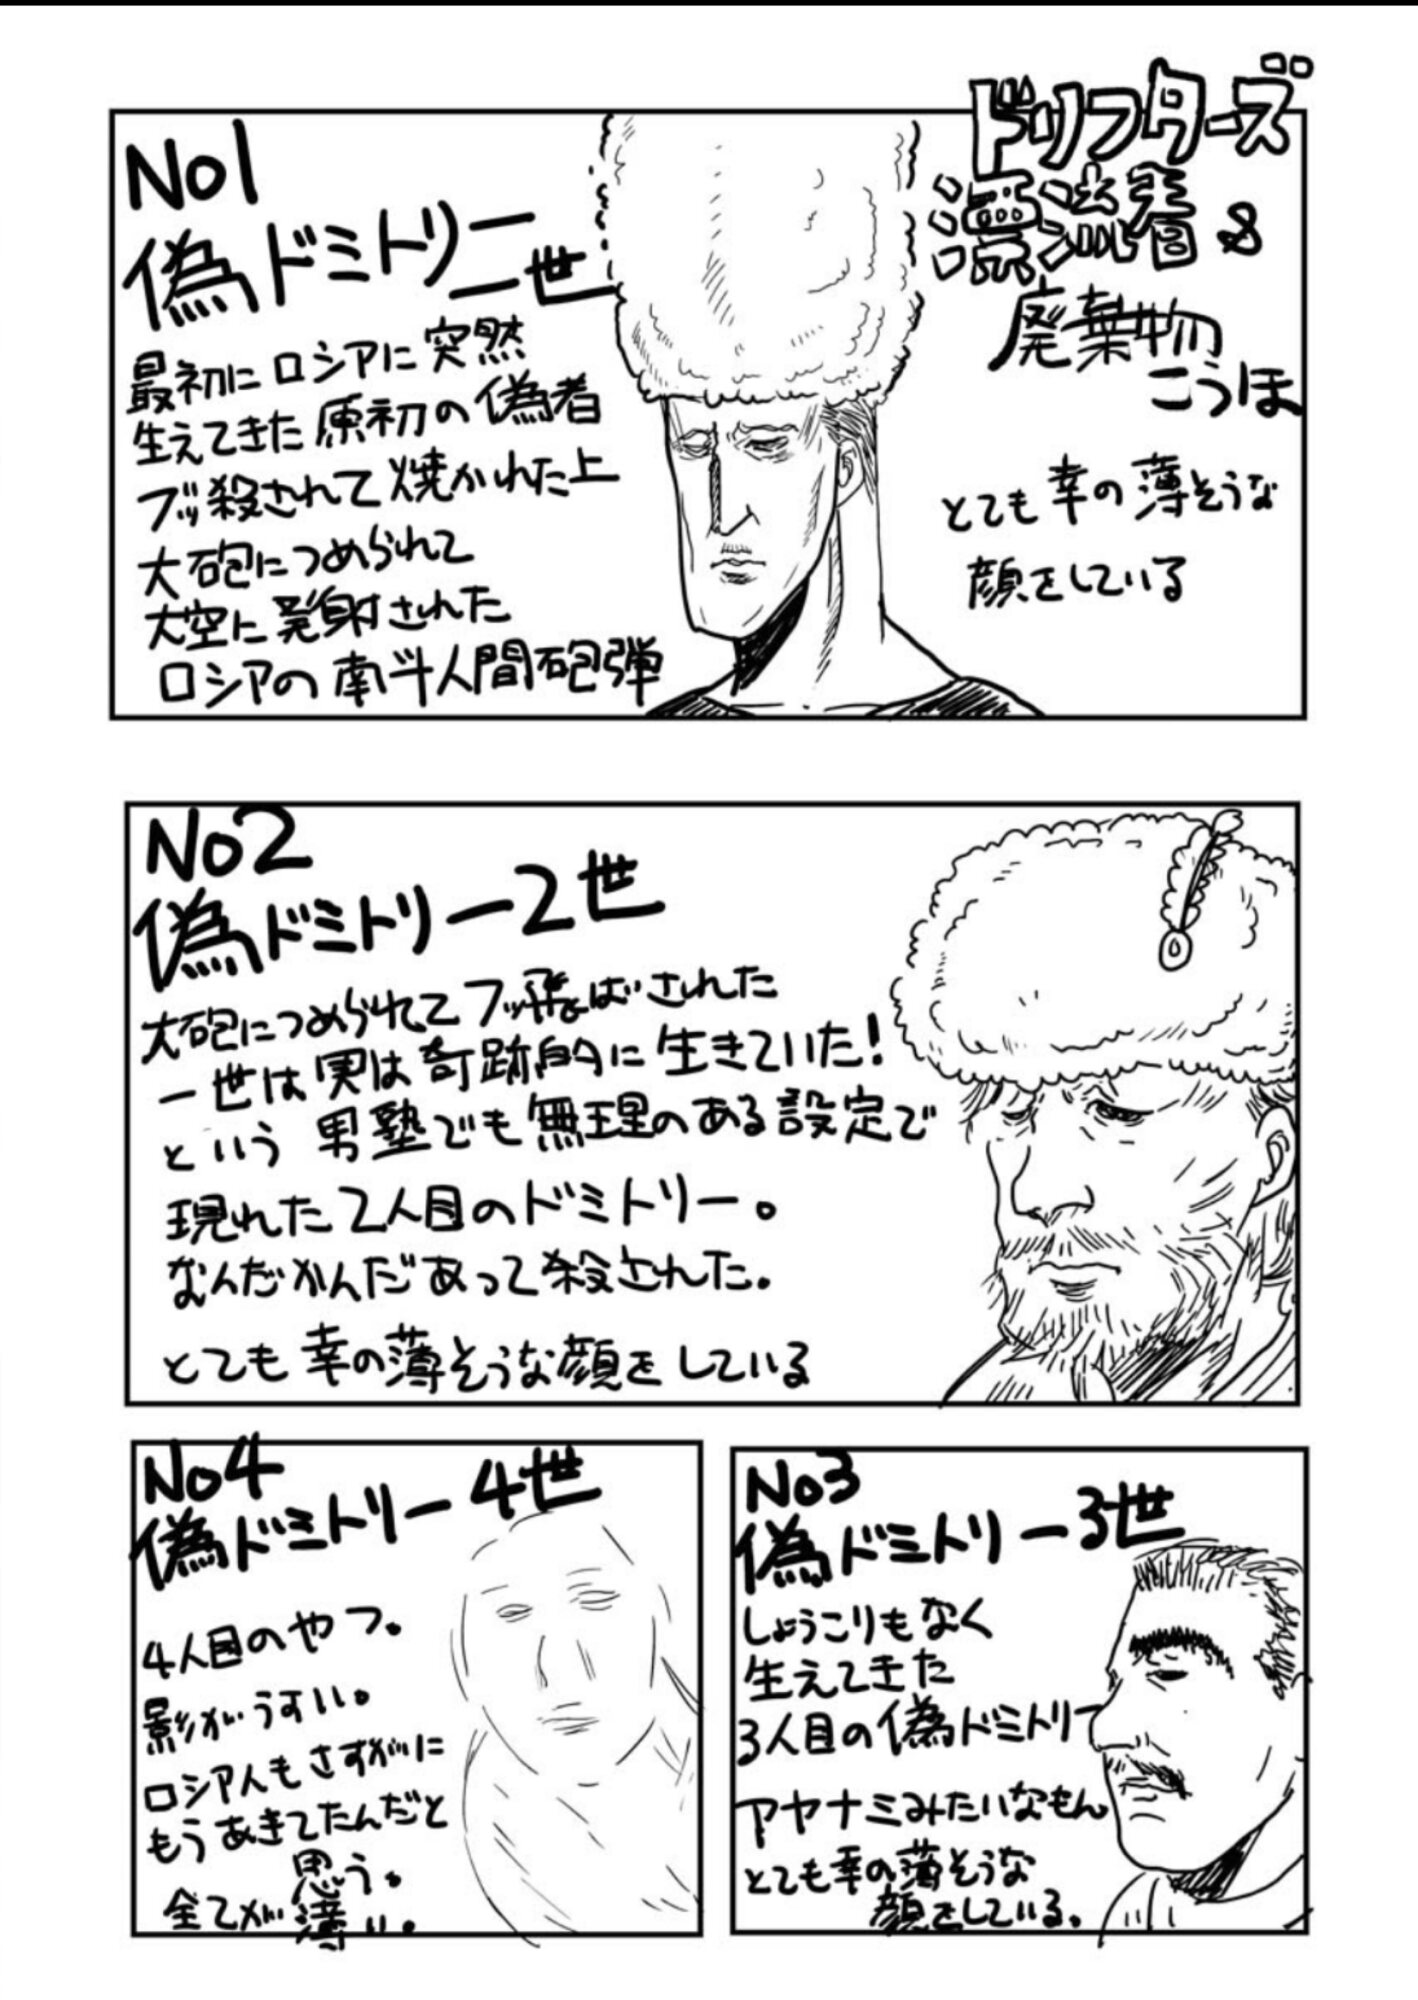 ドリフターズ
漂流者&
廃棄物
こうほ
No1
偽ドミトリー
一世
最初にロシアに突然
生えてきた原初の偽者
ブッ殺されて焼かれた上
大砲につめられて
大空に発射された
ロシアの南斗人間砲弾
とても幸の薄そうな
顔をしている
No2
偽ドミトリー2世
大砲につめられてブッ飛ばされた
一世は実は奇跡的に生きていた!
という男塾でも無理のある設定で
現れた2人目のドミトリー。
なんだかんだあって殺された。
とても幸の薄そうな顔をしている
No3
偽ドミトリー3世
しょうこりもなく
生えてきた
3人目の偽ドミトリー
アヤナミみたいなもん
とても幸の薄そうな
顔をしている。
No4
偽ドミトリー4世
4人目のやつ。
影がうすい。
ロシア人もさすがに
もうあきてたんだと
思う。
全てが薄い。